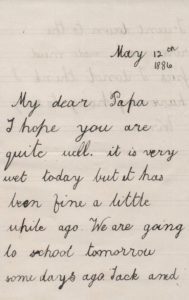 May 12th
1886
My dear Papa
I hope you are
quite well. it is very
wet today but it has
been fine a little
while ago. We are going
to school tomorrow
some days ago Jack and